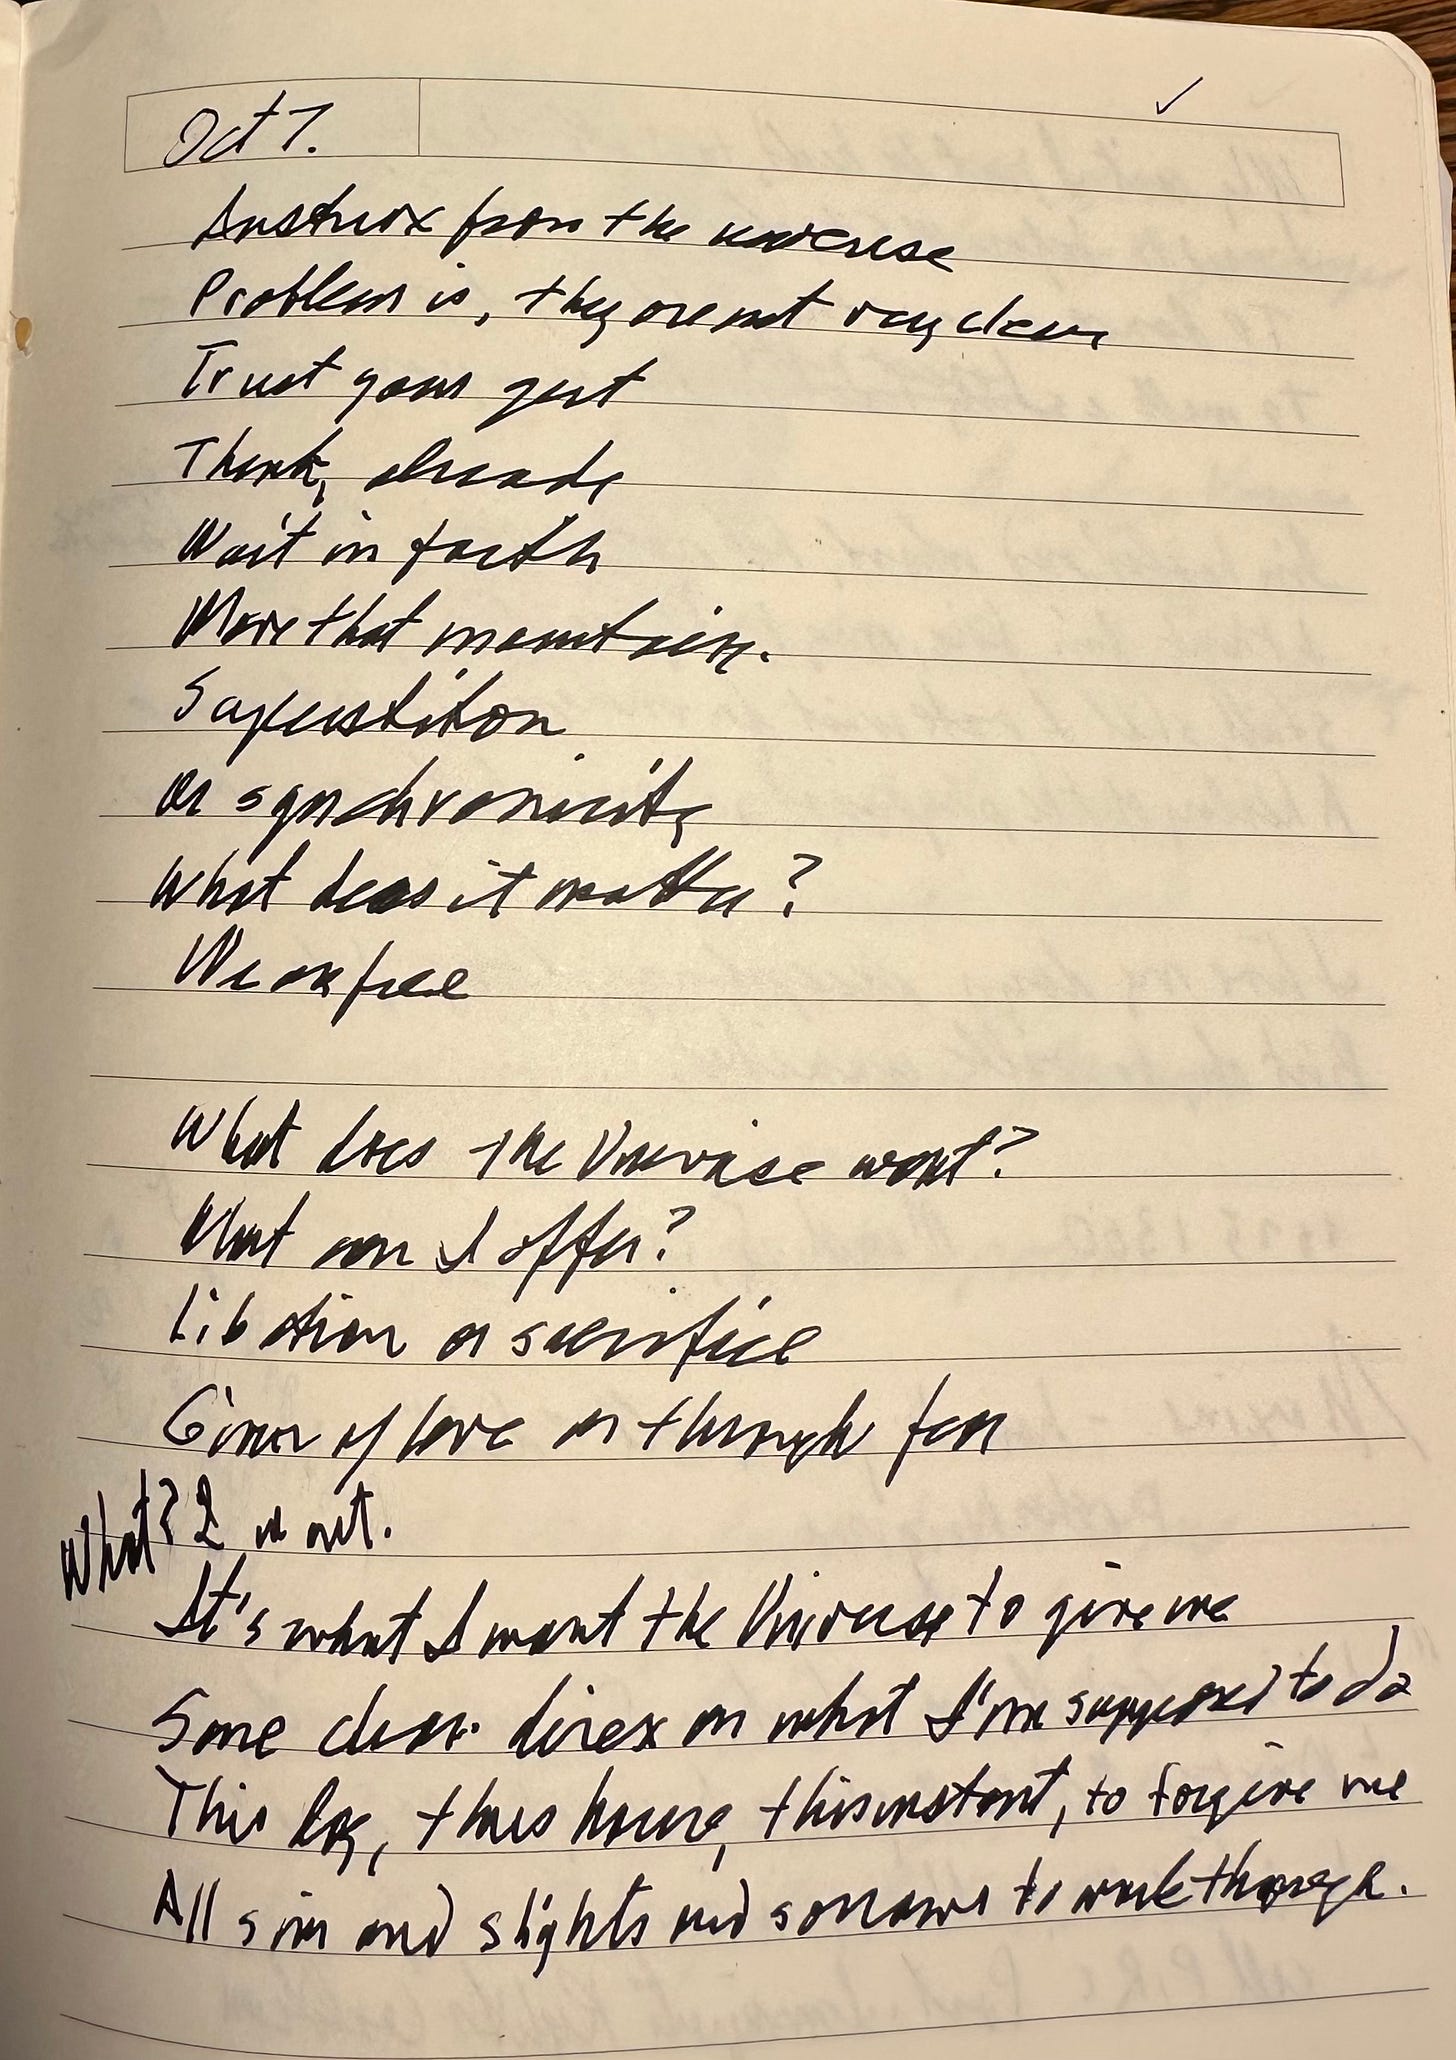 Oct 7.
Instrux from the universe
Problem is, they are not very clear
Trust your gut
Think, already
Wait in faith
Move that mountain.
Superstition
or synchronicity
What does it matter?
We are free
What does the Universe want?
What can I offer?
Libation or sacrifice
Given of love or through fear
What?
It's what I want the Universe to give me
Some clear direx on what I'm supposed to do
This day, this hour, this instant, to forgive me
All sins and slights and sorrows to work through.